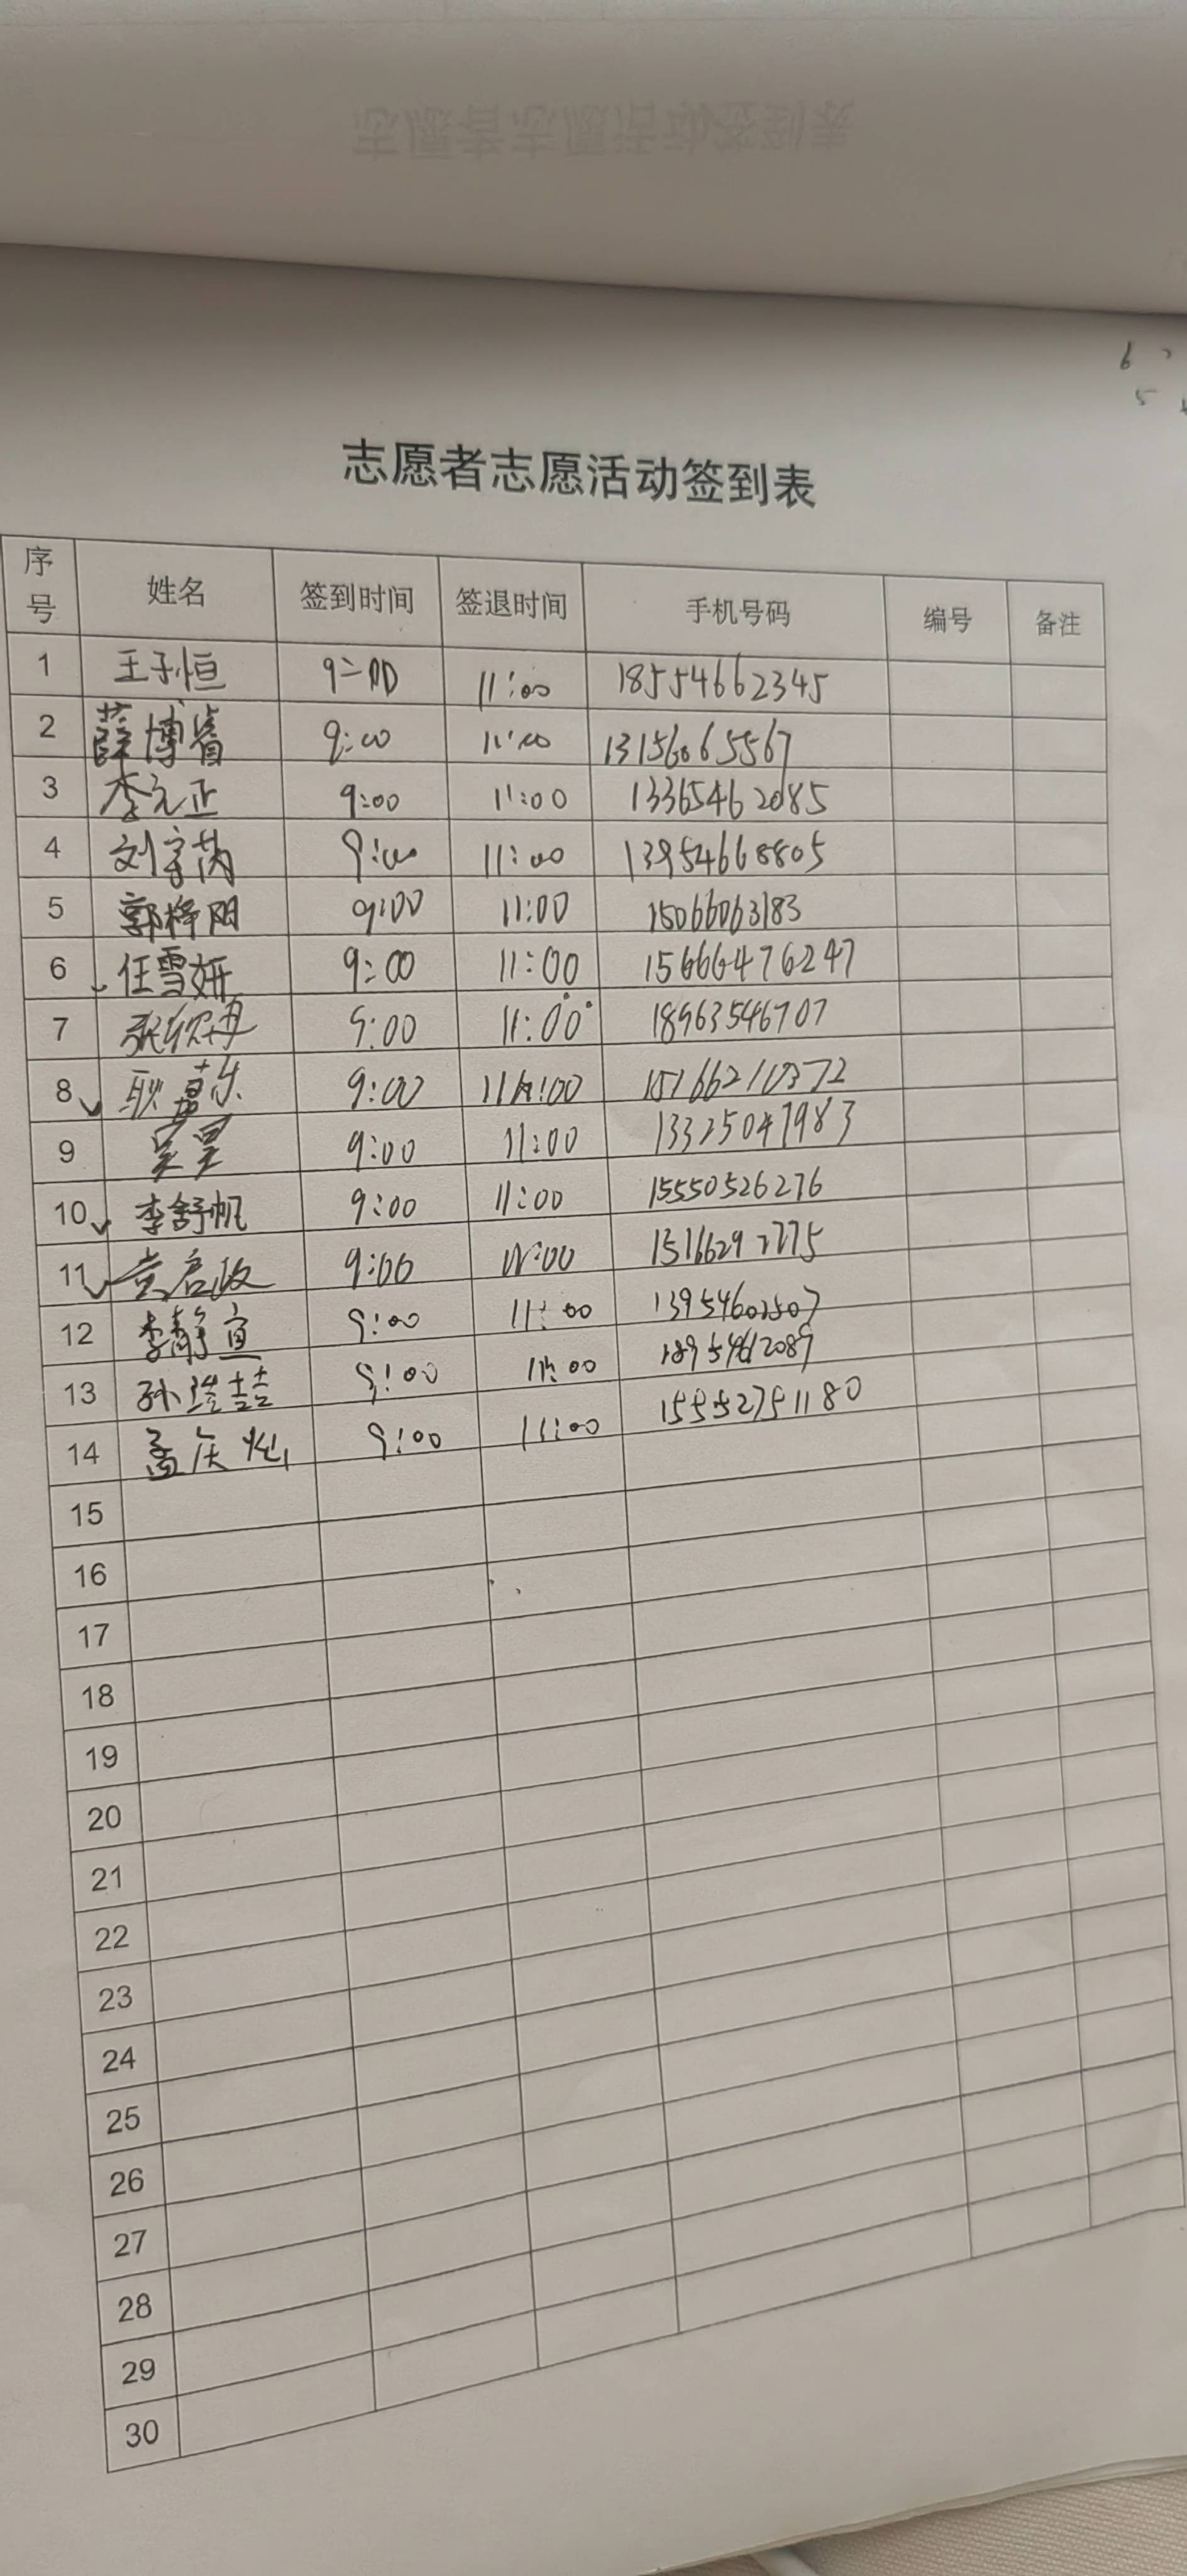 志愿者志愿活动签到表
6
5
志愿者志愿活动签到表
序号 姓名 签到时间 签退时间 手机号码 编号 备注
1 王子恒 9:00 11:00 18554662345
2 薛博睿 9:00 11:00 13156065567
3 李元正 9:00 11:00 13365462085
4 刘宇芮 9:00 11:00 13954668805
5 郭梓阳 9:00 11:00 15066063183
6 任雪妍 9:00 11:00 15666476247
7 9:00 11:00 18963546707
8 耿嘉乐 9:00 11:00 15166210372
9 吴昊 9:00 11:00 13325047983
10 李舒帆 9:00 11:00 15550526276
11 黄启政 9:00 11:00 15166292775
12 李静宜 9:00 11:00 13954602507
13 孙 喆 9:00 11:00
14 孟庆 9:00 11:00 15552751180
15
16
17
18
19
20
21
22
23
24
25
26
27
28
29
30